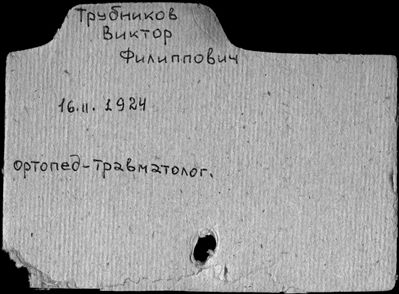 Трубников
Виктор
Филиппович
16.II. 1924
ортопед-травматолог.